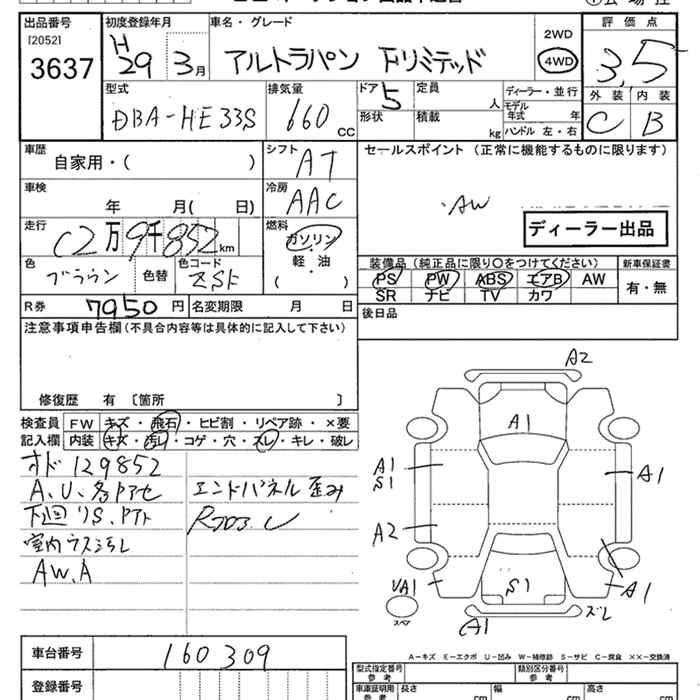 出品番号 初度登録年月 車名・グレード 評価点
[2052]
3637
H29 3月 アルトラパン Fリミテッド
2WD
4WD
3,5
型式 排気量 ドア 定員 ディーラー・並行 外装 内装
DBA-HE33S 660 cc 5 人 モデル年式 年
形状 積載 kg ハンドル 左・右 C B
車歴 シフト セールスポイント(正常に機能するものに限ります)
自家用・( ) AT
車検 冷房
年 月( 日) AAC ・AW
ディーラー出品
走行 燃料
C2万9千852km ガソリン
軽・油
( )
色 色替 色コード
ブラウン ZSF
装備品(純正品に限り○をつけてください) 新車保証書
PS PW ABS エアB AW 有・無
SR ナビ TV カワ
R券 7950円 名変期限 月 日 後日品
注意事項申告欄(不具合内容等は具体的に記入して下さい)
修復歴 有〔箇所 〕
検査員 FW キズ・飛石・ヒビ割・リペア跡・×要
記入欄 内装 キズ・汚レ・コゲ・穴・スレ・キレ・破レ
オド129852
A.U.各Pアセ エンドパネル歪み
下回りS.Pアト
室内ウスミヨレ
AW.A
A2
A1
A1
S1
A1
A2
VA1
S1
A1
ズレ
A1
スペア
A－キズ E－エクボ U－凹み W－補修跡 S－サビ C－腐食 ××－交換済
車台番号 160309 型式指定番号 参考 類別区分番号 参考
登録番号 車庫証明用 参考 長さ cm 幅 cm 高さ cm